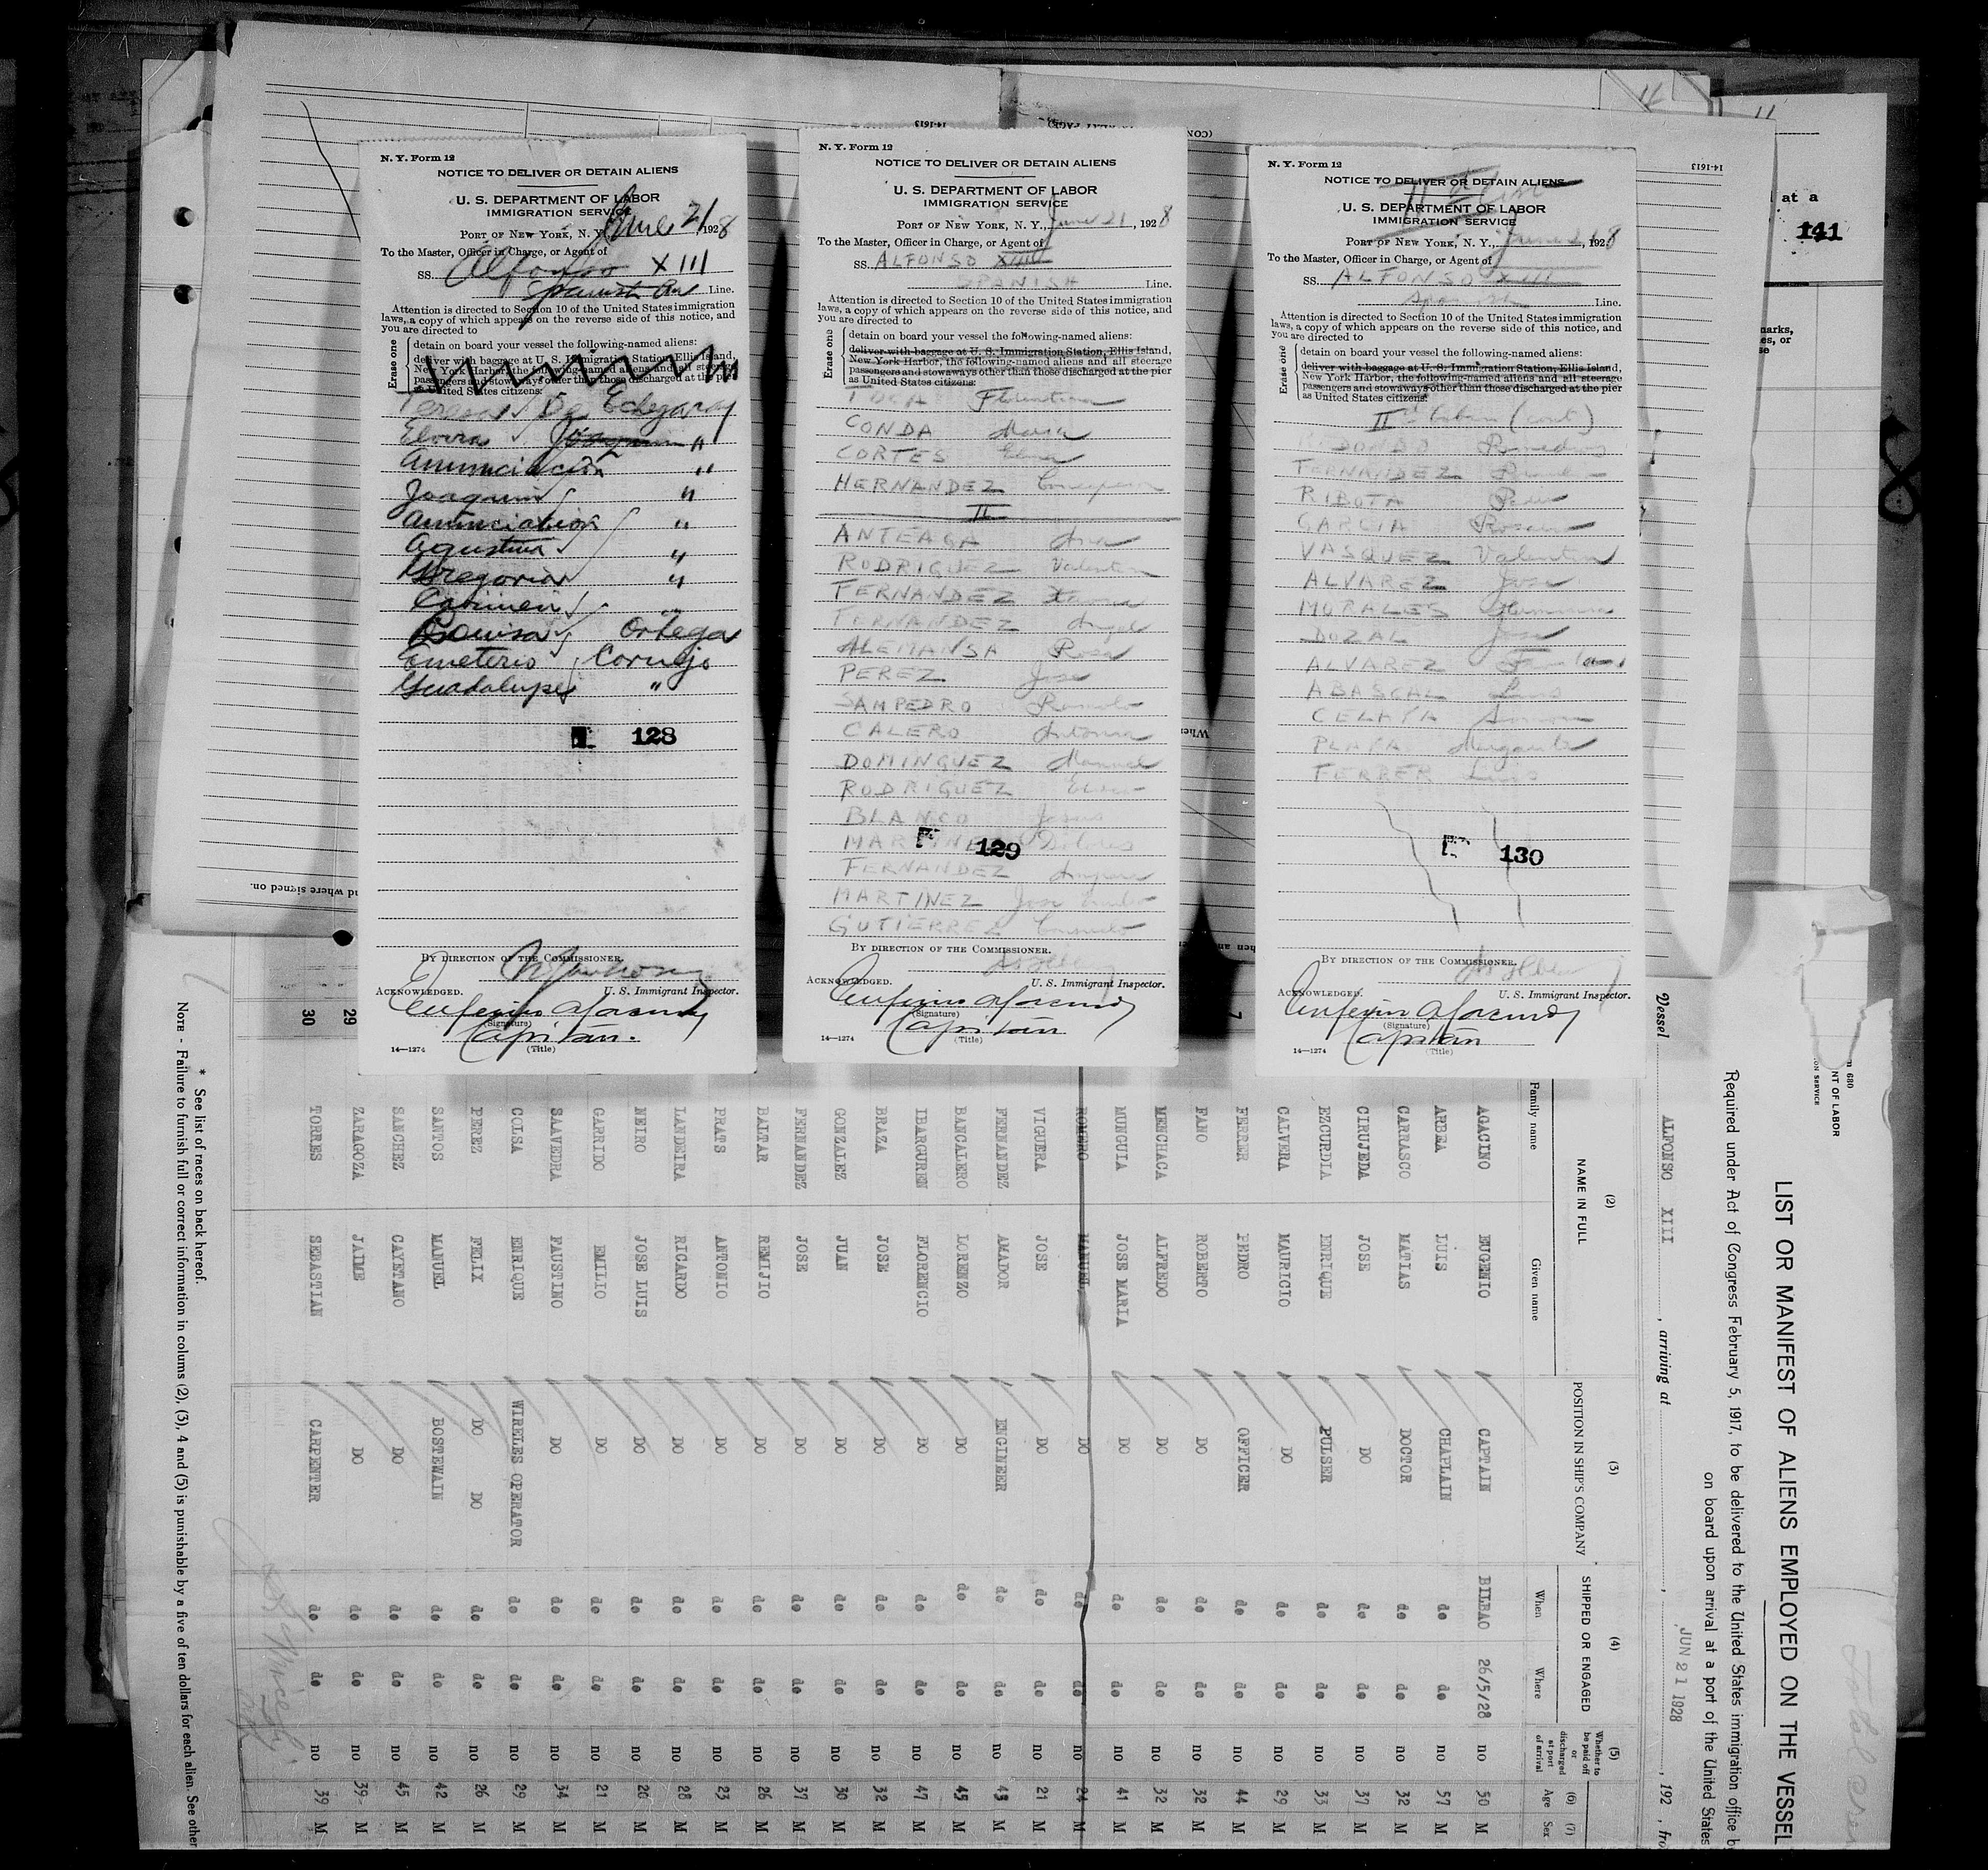 N. Y. Form 12
NOTICE TO DELIVER OR DETAIN ALIENS
U. S. DEPARTMENT OF LABOR
IMMIGRATION SERVICE
PORT OF NEW YORK, N. Y., June 21, 1928
To the Master, Officer in Charge, or Agent of
SS. Alfonso XIII
Spanish Line.
Attention is directed to Section 10 of the United States immigration
laws, a copy of which appears on the reverse side of this notice, and
you are directed to
Erase one
detain on board your vessel the following-named aliens:
deliver with baggage at U. S. Immigration Station, Ellis Island,
New York Harbor, the following-named aliens and all steerage
passengers and stowaways other than those discharged at the pier
as United States citizens:
Teresa De Echegaray
Elvira Joaquin "
Anunciacion "
Joaquin "
Anunciation "
Agustina "
Gregoria "
Carmen "
Louisa Ortega
Emeterio Cornejo
Guadalupe "
128
BY DIRECTION OF THE COMMISSIONER.
ACKNOWLEDGED. U. S. Immigrant Inspector.
(Signature)
Capitan.
14—1274 (Title)
N. Y. Form 12
NOTICE TO DELIVER OR DETAIN ALIENS
U. S. DEPARTMENT OF LABOR
IMMIGRATION SERVICE
PORT OF NEW YORK, N. Y., June 21, 1928
To the Master, Officer in Charge, or Agent of
SS. ALFONSO XIII
SPANISH Line.
Attention is directed to Section 10 of the United States immigration
laws, a copy of which appears on the reverse side of this notice, and
you are directed to
Erase one
detain on board your vessel the following-named aliens:
deliver with baggage at U. S. Immigration Station, Ellis Island,
New York Harbor, the following-named aliens and all steerage
passengers and stowaways other than those discharged at the pier
as United States citizens:
Florentina
CONDA Maria
CORTES Elena
HERNANDEZ Concepcion
II
ANTEAGA Ana
RODRIGUEZ Valentin
FERNANDEZ
FERNANDEZ Angel
ALEMANSA Rosa
PEREZ Jose
SAMPEDRO Ramolo
CALERO Antonia
DOMINGUEZ Manuel
RODRIGUEZ
BLANCO Jesus
MARTINEZ Dolores
FERNANDEZ
129
MARTINEZ Jose
GUTIERREZ Consuelo
BY DIRECTION OF THE COMMISSIONER.
ACKNOWLEDGED. U. S. Immigrant Inspector.
(Signature)
Capitan
14—1274 (Title)
N. Y. Form 12
NOTICE TO DELIVER OR DETAIN ALIENS
U. S. DEPARTMENT OF LABOR
IMMIGRATION SERVICE
PORT OF NEW YORK, N. Y., June 21, 1928
To the Master, Officer in Charge, or Agent of
SS. ALFONSO XIII
Spanish Line.
Attention is directed to Section 10 of the United States immigration
laws, a copy of which appears on the reverse side of this notice, and
you are directed to
Erase one
detain on board your vessel the following-named aliens:
deliver with baggage at U. S. Immigration Station, Ellis Island,
New York Harbor, the following-named aliens and all steerage
passengers and stowaways other than those discharged at the pier
as United States citizens:
II Cabin (cont)
FERNANDEZ
RIBOTA Pedro
GARCIA
VASQUEZ Valentin
ALVAREZ Jose
MORALES
DOZAL Jose
ALVAREZ
ABASCAL Luis
CELAYA
PLAYA Margarita
FERRER Luis
130
BY DIRECTION OF THE COMMISSIONER.
ACKNOWLEDGED. U. S. Immigrant Inspector.
(Signature)
Capitan
14—1274 (Title)
14-1613
14-1613
at a
141
nd where signed on.
LIST OR MANIFEST OF ALIENS EMPLOYED ON THE VESSEL
Required under Act of Congress February 5, 1917, to be delivered to the United States immigration office
on board upon arrival at a port of the United States
Vessel ALFONSO XIII, arriving at , JUN 21 1928, 192 , fro
(2) (3) (4) (5) (6) (7)
NAME IN FULL POSITION IN SHIP'S COMPANY SHIPPED OR ENGAGED Whether to be paid off or discharged at port of arrival Age Sex
Family name Given name When Where
AGACINO EUGENIO CAPTAIN BILBAO 26/5/28 no 50 M
ARBEA LUIS CHAPLAIN do do no 57 M
CARRASCO MATIAS DOCTOR do do no 32 M
CIRUJEDA JOSE DO do do no 37 M
EZCURDIA ENRIQUE PULSER do do no 33 M
CALVERA MAURICIO DO do do no 29 M
FERRER PEDRO OFFICER do do no 44 M
FANO ROBERTO DO do do no 32 M
MENCHACA ALFREDO DO do do no 32 M
MUNGUIA JOSE MARIA DO do do no 41 M
ROMERO MANUEL DO do do no 24 M
VIGUERA JOSE DO do do no 21 M
FERNANDEZ AMADOR ENGINEER do do no 43 M
BANCALERO LORENZO DO do do no 45 M
IBARGUREN FLORENCIO DO do do no 47 M
BRAZA JOSE DO do do no 32 M
GONZALEZ JUAN DO do do no 30 M
FERNANDEZ JOSE DO do do no 37 M
BALTAR REMIJIO DO do do no 26 M
PRATS ANTONIO DO do do no 23 M
LANDEIRA RICARDO DO do do no 28 M
NEIRO JOSE LUIS DO do do no 20 M
GARRIDO EMILIO DO do do no 21 M
SAAVEDRA FAUSTINO DO do do no 34 M
COLSA ENRIQUE WIRELES OPERATOR do do no 29 M
PEREZ FELIX DO DO do do no 26 M
SANTOS MANUEL BOSTEWAIN do do no 42 M
SANCHEZ CAYETANO DO do do no 45 M
29 ZARAGOZA JAIME DO do do no 39 M
30 TORRES SEBASTIAN CARPENTER do do no 39 M
* See list of races on back hereof.
NOTE - Failure to furnish full or correct information in colums (2), (3), 4 and (5) is punishable by a five of ten dollars for each alien. See other